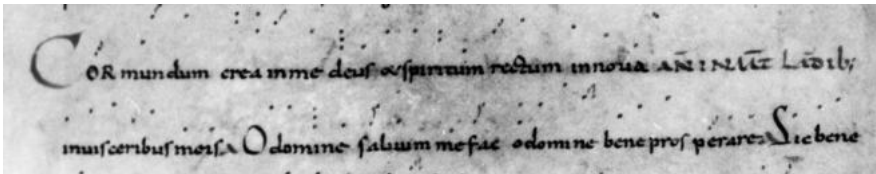 COR mundum crea inme deus &spiritum rectum innoua AÑ IN LAUDIB;
inuisceribus meis. O domine saluum me fac odomine bene prosperare. Sic bene